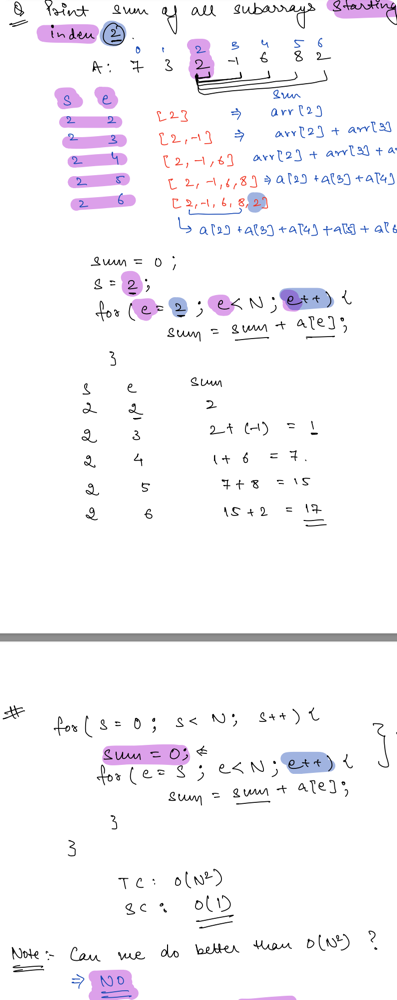 Q Print sum of all subarrays starting
index 2.
0 1 2 3 4 5 6
A: 7 3 2 -1 6 8 2
s e sum
2 2 [2] ⇒ arr[2]
2 3 [2, -1] ⇒ arr[2] + arr[3]
2 4 [2, -1, 6] arr[2] + arr[3] + a
2 5 [2, -1, 6, 8] ⇒ a[2] + a[3] + a[4]
2 6 [2, -1, 6, 8, 2]
↳ a[2] + a[3] + a[4] + a[5] + a[6
sum = 0;
s = 2;
for( e = 2 ; e < N ; e++) {
sum = sum + a[e];
}
s e sum
2 2 2
2 3 2 + (-1) = 1
2 4 1 + 6 = 7.
2 5 7 + 8 = 15
2 6 15 + 2 = 17
# for( s = 0 ; s < N ; s++) {
sum = 0; ⇐
for( e = s ; e < N ; e++) {
sum = sum + a[e];
}
}
TC: O(N²)
SC: O(1)
Note:- Can we do better than O(N²) ?
⇒ NO